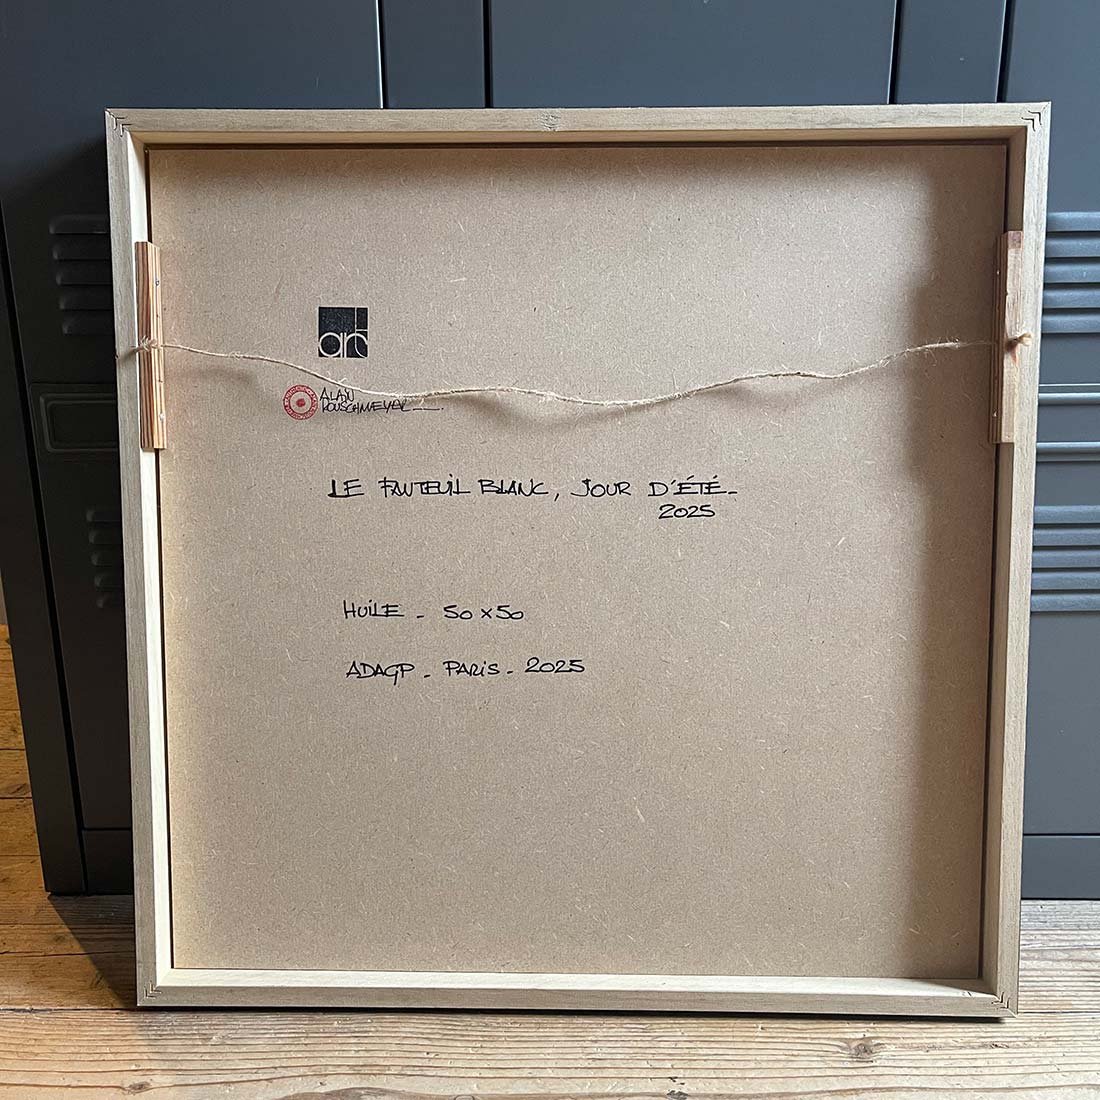 art
ALAIN
ROUSCHMEYER
LE FAUTEUIL BLANC, JOUR D'ÉTÉ_
2025
HUILE _ 50 x 50
ADAGP _ PARIS _ 2025